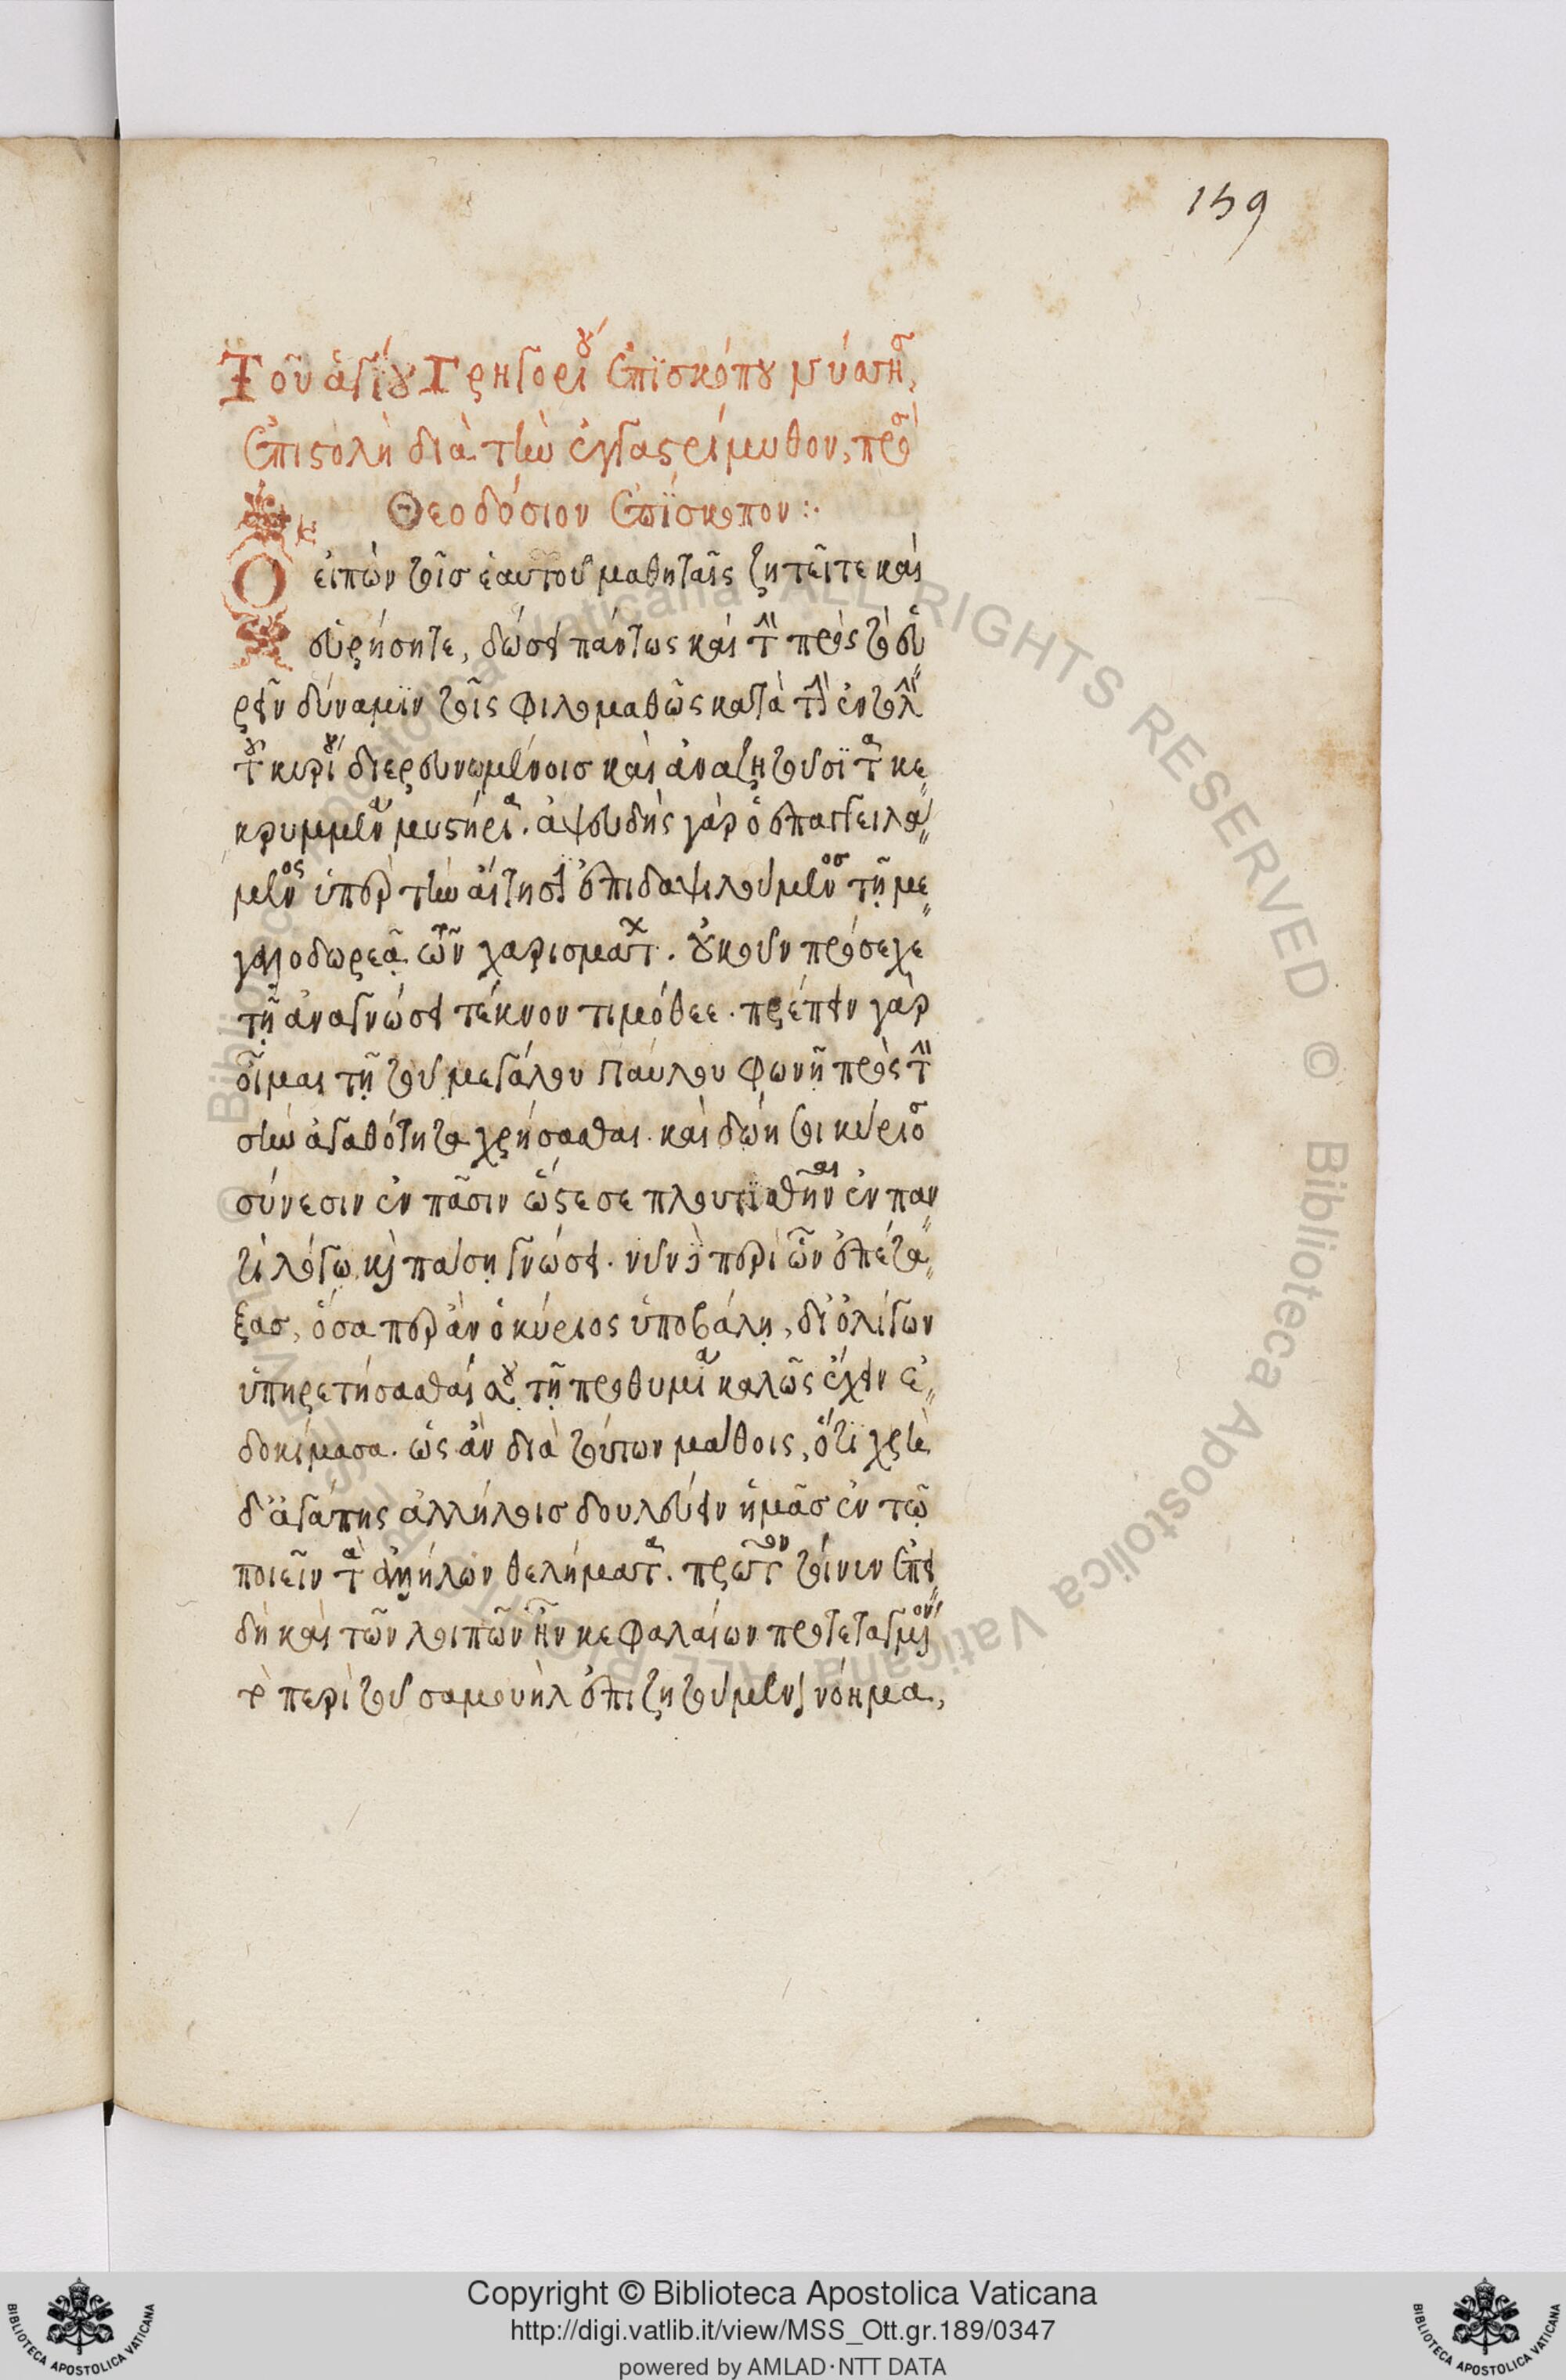 159
Τοῦ ἁγίου Γρηγορίου ἐπϊσκόπου νύσης,
ἐπιστολὴ διὰ τὴν ἐγγαστρίμυθον, πρὸς
Θεοδόσιον ἐπΐσκοπον :.
Ὁ εἰπὼν τοῖς ἑαυτοῦ μαθηταῖς ζητεῖτε καὶ
εὑρήσητε, δώσει πάντως καὶ τὴν πρὸς τὸ εὑ
ρεῖν δύναμϊν τοῖς φιλομαθῶς κατὰ τὴν ἐντολὴν
τοῦ κυρίου διερευνωμένοις καὶ ἀναζητοῦσϊ τὰ κε
κρυμμένα μυστήρια. ἀψευδὴς γὰρ ὁ ἐπαγγειλά
μενος ὑπὲρ τὴν αἴτησιν ἐπιδαψιλευόμενος τῇ με
γαλοδωρεᾷ τῶν χαρισμάτων. οὐκοῦν πρόσεχε
τῇ ἀναγνώσει τέκνον τιμόθεε. πρέπειν γὰρ
οἶμαι τῇ τοῦ μεγάλου Παύλου φωνῇ πρὸς τὴν
σὴν ἀγαθότητα χρήσασθαι. καὶ δώη σοι κύριος
σύνεσιν ἐν πᾶσιν ὥστε σε πλουτϊσθῆναι ἐν παν
τὶ λόγῳ καὶ πάσῃ γνώσει. νῦν δὲ περὶ ὧν ἐπέτα
ξας, ὅσαπερ ἂν ὁ κύριος ὑποβάλῃ, δι' ὀλίγων
ὑπηρετήσασθαί σου τῇ προθυμίᾳ καλῶς ἔχειν ἐ
δοκίμασα. ὡς ἂν διὰ τούτων μάθοις, ὅτϊ χρὴ
δι' ἀγάπης ἀλλήλοις δουλεύειν ἡμᾶς ἐν τῷ
ποιεῖν τὰ ἀλλήλων θελήματα. πρῶτον τοίνυν ἐπει
δὴ καὶ τῶν λοιπῶν ἦν κεφαλαίων προτεταγμένον
τὸ περὶ τοῦ σαμουὴλ ἐπιζητούμενον νόημα,
Copyright © Biblioteca Apostolica Vaticana
http://digi.vatlib.it/view/MSS_Ott.gr.189/0347
powered by AMLAD·NTT DATA